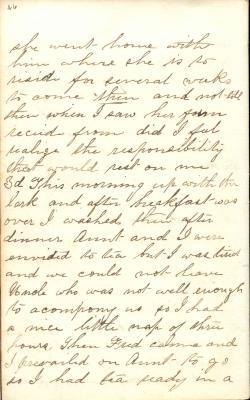 she went home with
him where she is to
reside for several weeks
to come then and not till
then when I saw her form
recede from did I ful
realize the responsibility
that would rest on me
3d This morning up with the
lark and after breakfast was
over I washed then after
dinner Aunt and I were
envided to tea but I was tired
and we could not leave
Uncle who was not well enough
to accompony us so I had
a nice little nap of three
hours, Then Fred came and
I prevailed on Aunt to go
so I had tea ready in a